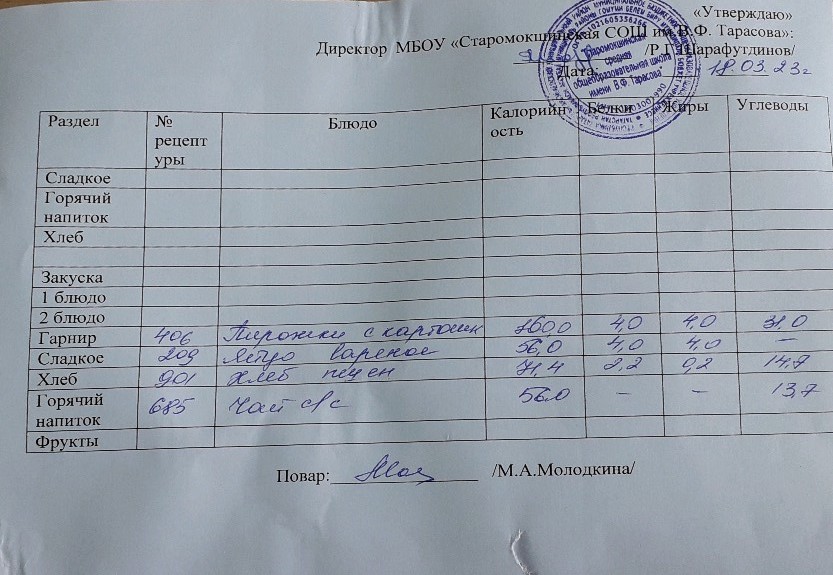 «Утверждаю»
Директор МБОУ «Старомокшинская СОШ им.В.Ф. Тарасова»:
/Р.Г.Шарафутдинов/
Дата: 18.03.23г
"Старомокшинская
средняя
общеобразовательная школа
имени В.Ф. Тарасова"
Раздел № рецепт уры Блюдо Калорийн ость Белки Жиры Углеводы
Сладкое
Горячий напиток
Хлеб
Закуска
1 блюдо
2 блюдо
Гарнир 406 Пирожки с картошк 160,0 4,0 4,0 31,0
Сладкое 209 Яйцо вареное 56,0 4,0 4,0 –
Хлеб 901 Хлеб пшен 71,4 2,2 0,2 14,7
Горячий напиток 685 Чай с/с 56,0 – – 13,7
Фрукты
Повар: /М.А.Молодкина/